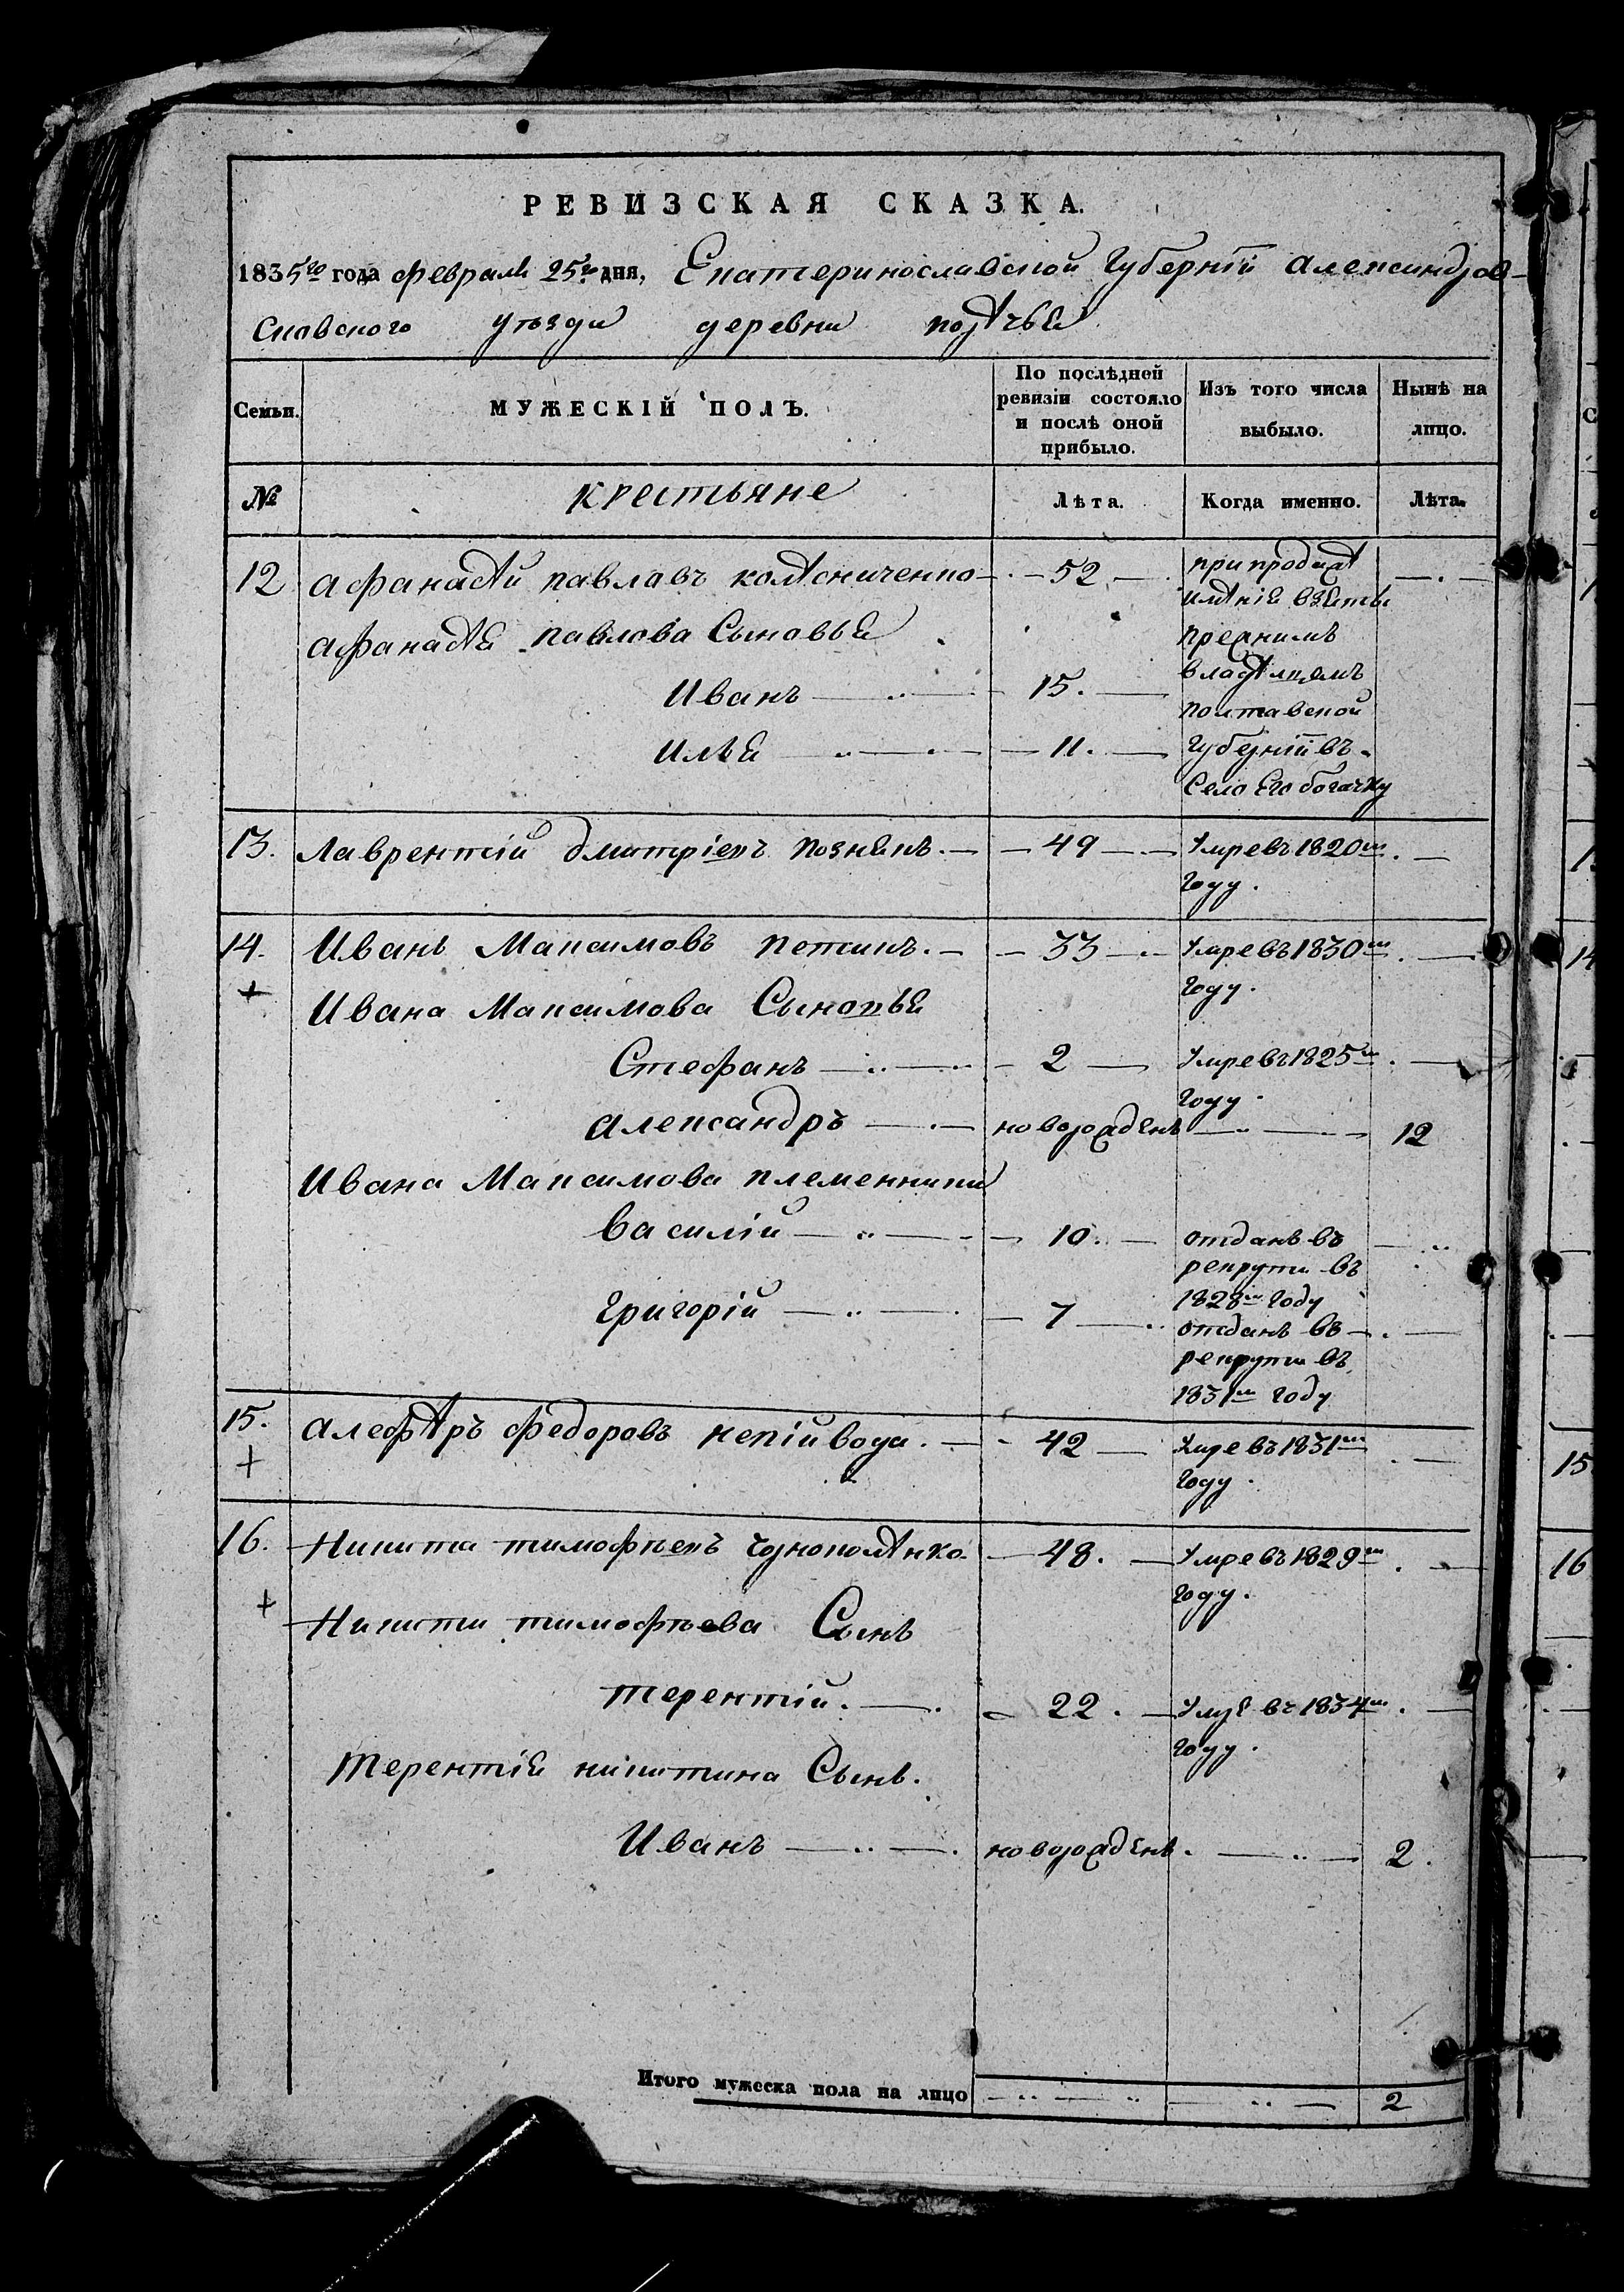 РЕВИЗСКАЯ СКАЗКА.
1835го года февраля 25го дня, Екатеринославской Губерніи Александров-
Славского уѣзда деревни
Семьи.
МУЖЕСКІЙ ПОЛЪ.
По послѣдней
ревизіи состояло
и послѣ оной
прибыло.
Изъ того числа
выбыло.
Нынѣ на
лицо.
№ крестьяне Лѣта. Когда именно. Лѣта.
12 Афанасѣй павлавъ колѣсниченко 52 при продажѣ
имѣнія взяты
Афанасѣя павлова Сыновья прежнимъ
владѣлцемъ
Иванъ 15. полтавской
Илья 11. Губерніи въ
Село его богачку
13. Лаврентій дмитріевъ познякъ. 49 Умре въ 1820м
году.
14. Иванъ Максимовъ 33 Умре въ 1830м
году.
+ Ивана Максимова Сыновья
Стефанъ 2 Умре въ 1825м
году.
Александръ новорожденъ 12
Ивана Максимова племенники
Василій 10. отданъ въ
рекруты въ
1828м году
Григорій 7 отданъ въ
рекруты въ
1831м году
15. Алефѣръ Федоровъ непійвода. 42 Умре въ 1831м
+ году.
16. Никита тимофѣевъ 48. Умре въ 1829м
году.
+ Никиты тимофѣева Сынъ
терентій. 22. Умре въ 1834м
году.
Терентія никитина Сынъ.
Иванъ новорожденъ. 2.
Итого мужеска пола на лицо 2
15
16